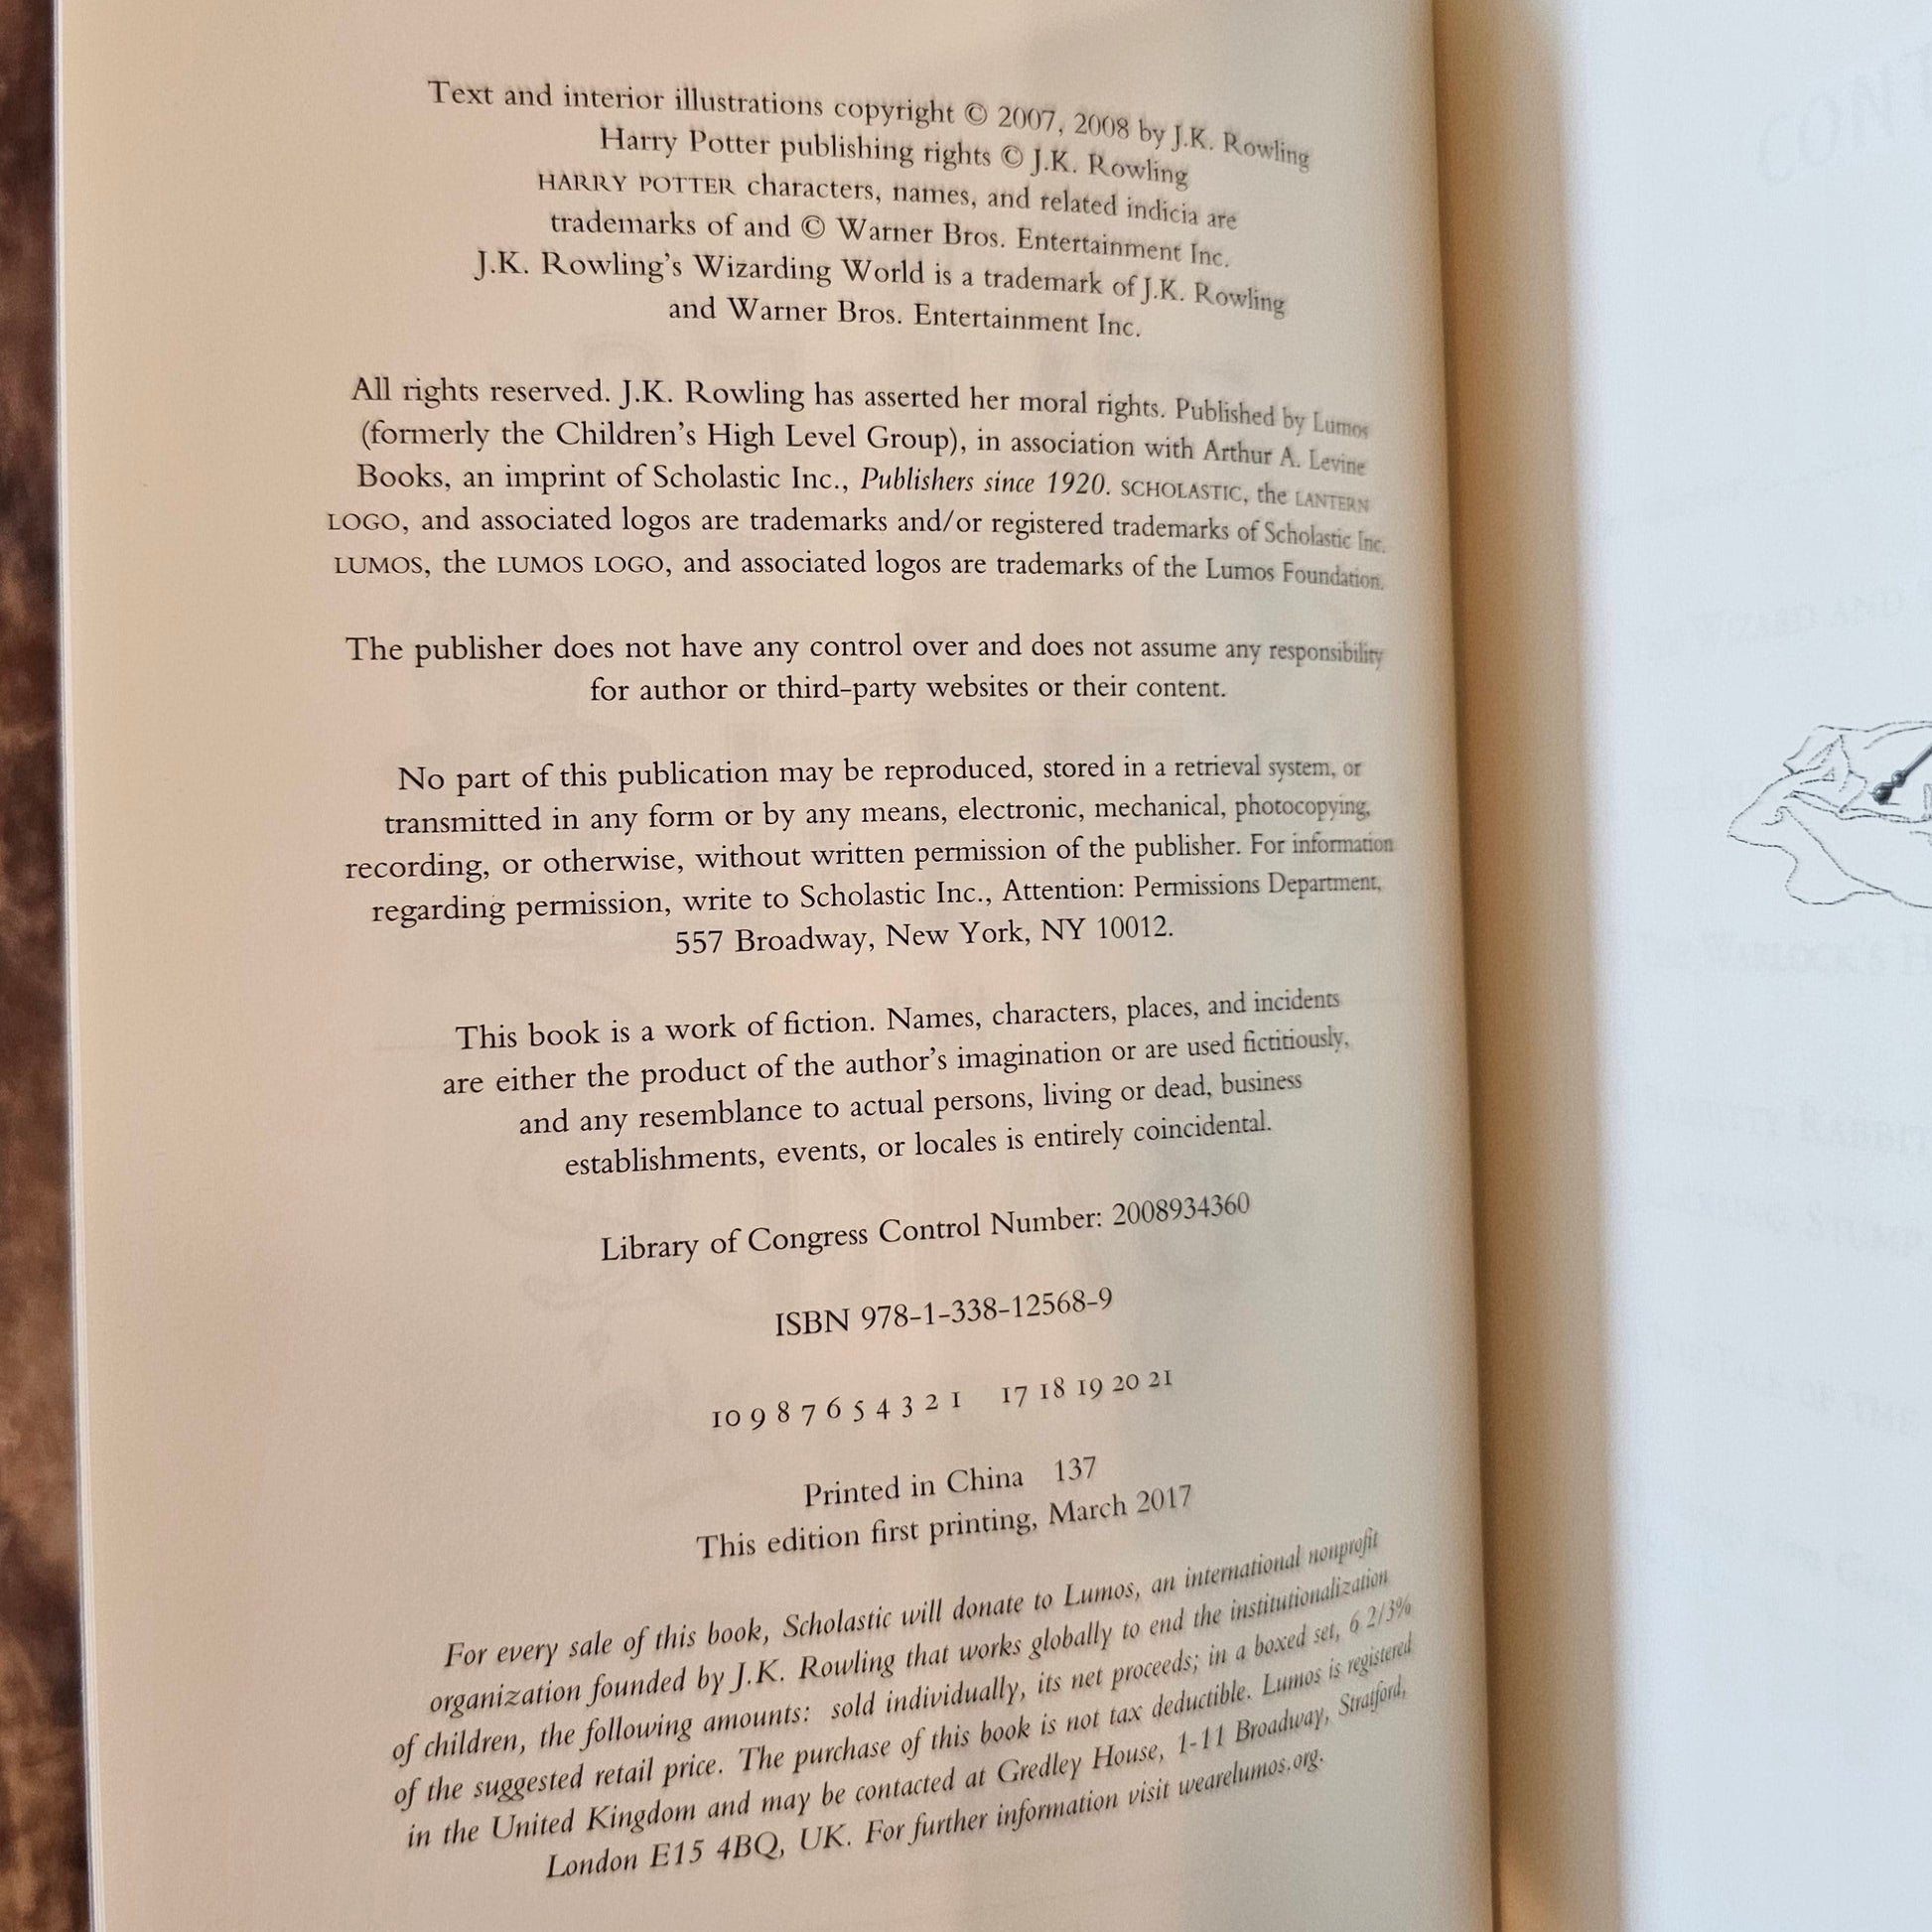 Text and interior illustrations copyright © 2007, 2008 by J.K. Rowling
Harry Potter publishing rights © J.K. Rowling
HARRY POTTER characters, names, and related indicia are
trademarks of and © Warner Bros. Entertainment Inc.
J.K. Rowling's Wizarding World is a trademark of J.K. Rowling
and Warner Bros. Entertainment Inc.
All rights reserved. J.K. Rowling has asserted her moral rights. Published by Lumos
(formerly the Children's High Level Group), in association with Arthur A. Levine
Books, an imprint of Scholastic Inc., Publishers since 1920. SCHOLASTIC, the LANTERN
LOGO, and associated logos are trademarks and/or registered trademarks of Scholastic Inc.
LUMOS, the LUMOS LOGO, and associated logos are trademarks of the Lumos Foundation.
The publisher does not have any control over and does not assume any responsibility
for author or third-party websites or their content.
No part of this publication may be reproduced, stored in a retrieval system, or
transmitted in any form or by any means, electronic, mechanical, photocopying,
recording, or otherwise, without written permission of the publisher. For information
regarding permission, write to Scholastic Inc., Attention: Permissions Department,
557 Broadway, New York, NY 10012.
This book is a work of fiction. Names, characters, places, and incidents
are either the product of the author's imagination or are used fictitiously,
and any resemblance to actual persons, living or dead, business
establishments, events, or locales is entirely coincidental.
Library of Congress Control Number: 2008934360
ISBN 978-1-338-12568-9
10 9 8 7 6 5 4 3 2 1 17 18 19 20 21
Printed in China 137
This edition first printing, March 2017
For every sale of this book, Scholastic will donate to Lumos, an international nonprofit
organization founded by J.K. Rowling that works globally to end the institutionalization
of children, the following amounts: sold individually, its net proceeds; in a boxed set, 6 2/3%
of the suggested retail price. The purchase of this book is not tax deductible. Lumos is registered
in the United Kingdom and may be contacted at Gredley House, 1-11 Broadway, Stratford,
London E15 4BQ, UK. For further information visit wearelumos.org.